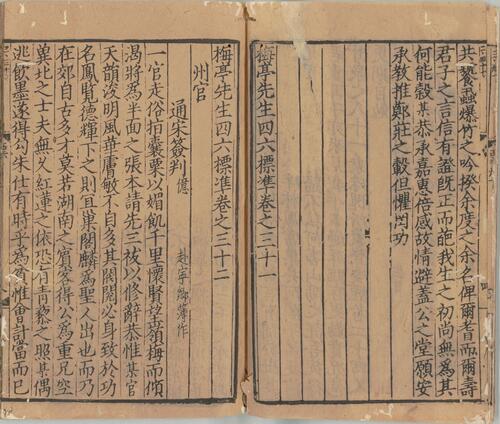 共饕蝨爆竹之吟揆余度之余名俾爾耆而爾壽
君子之言信有證既正而葩我生之初尚無為其
何能穀某恭承嘉惠倍感故情避蓋公之堂願安
承教推鄭莊之轂但懼罔功
梅亭先生四六標準卷之三十一
梅亭先生四六標準卷之三十二
州官
通宋簽判 億
赴宇鄉簿作
一官走俗拍囊粟以媚飢千里懷賢望嶺梅而傾
渴將為半面之張本請先三祓以修辭恭惟某官
天韻浚明風華膚敏不自多其閥閱必身致於功
名鳳覽德輝下之則宜巢閣麟為聖人出也而乃
在郊自古多才莫若湖南之賓客得公為重足空
冀北之士夫無久紅蓮之依恐有青藜之照某偶
逃飲墨遂得勾朱仕有時乎為貧惟會計當而已